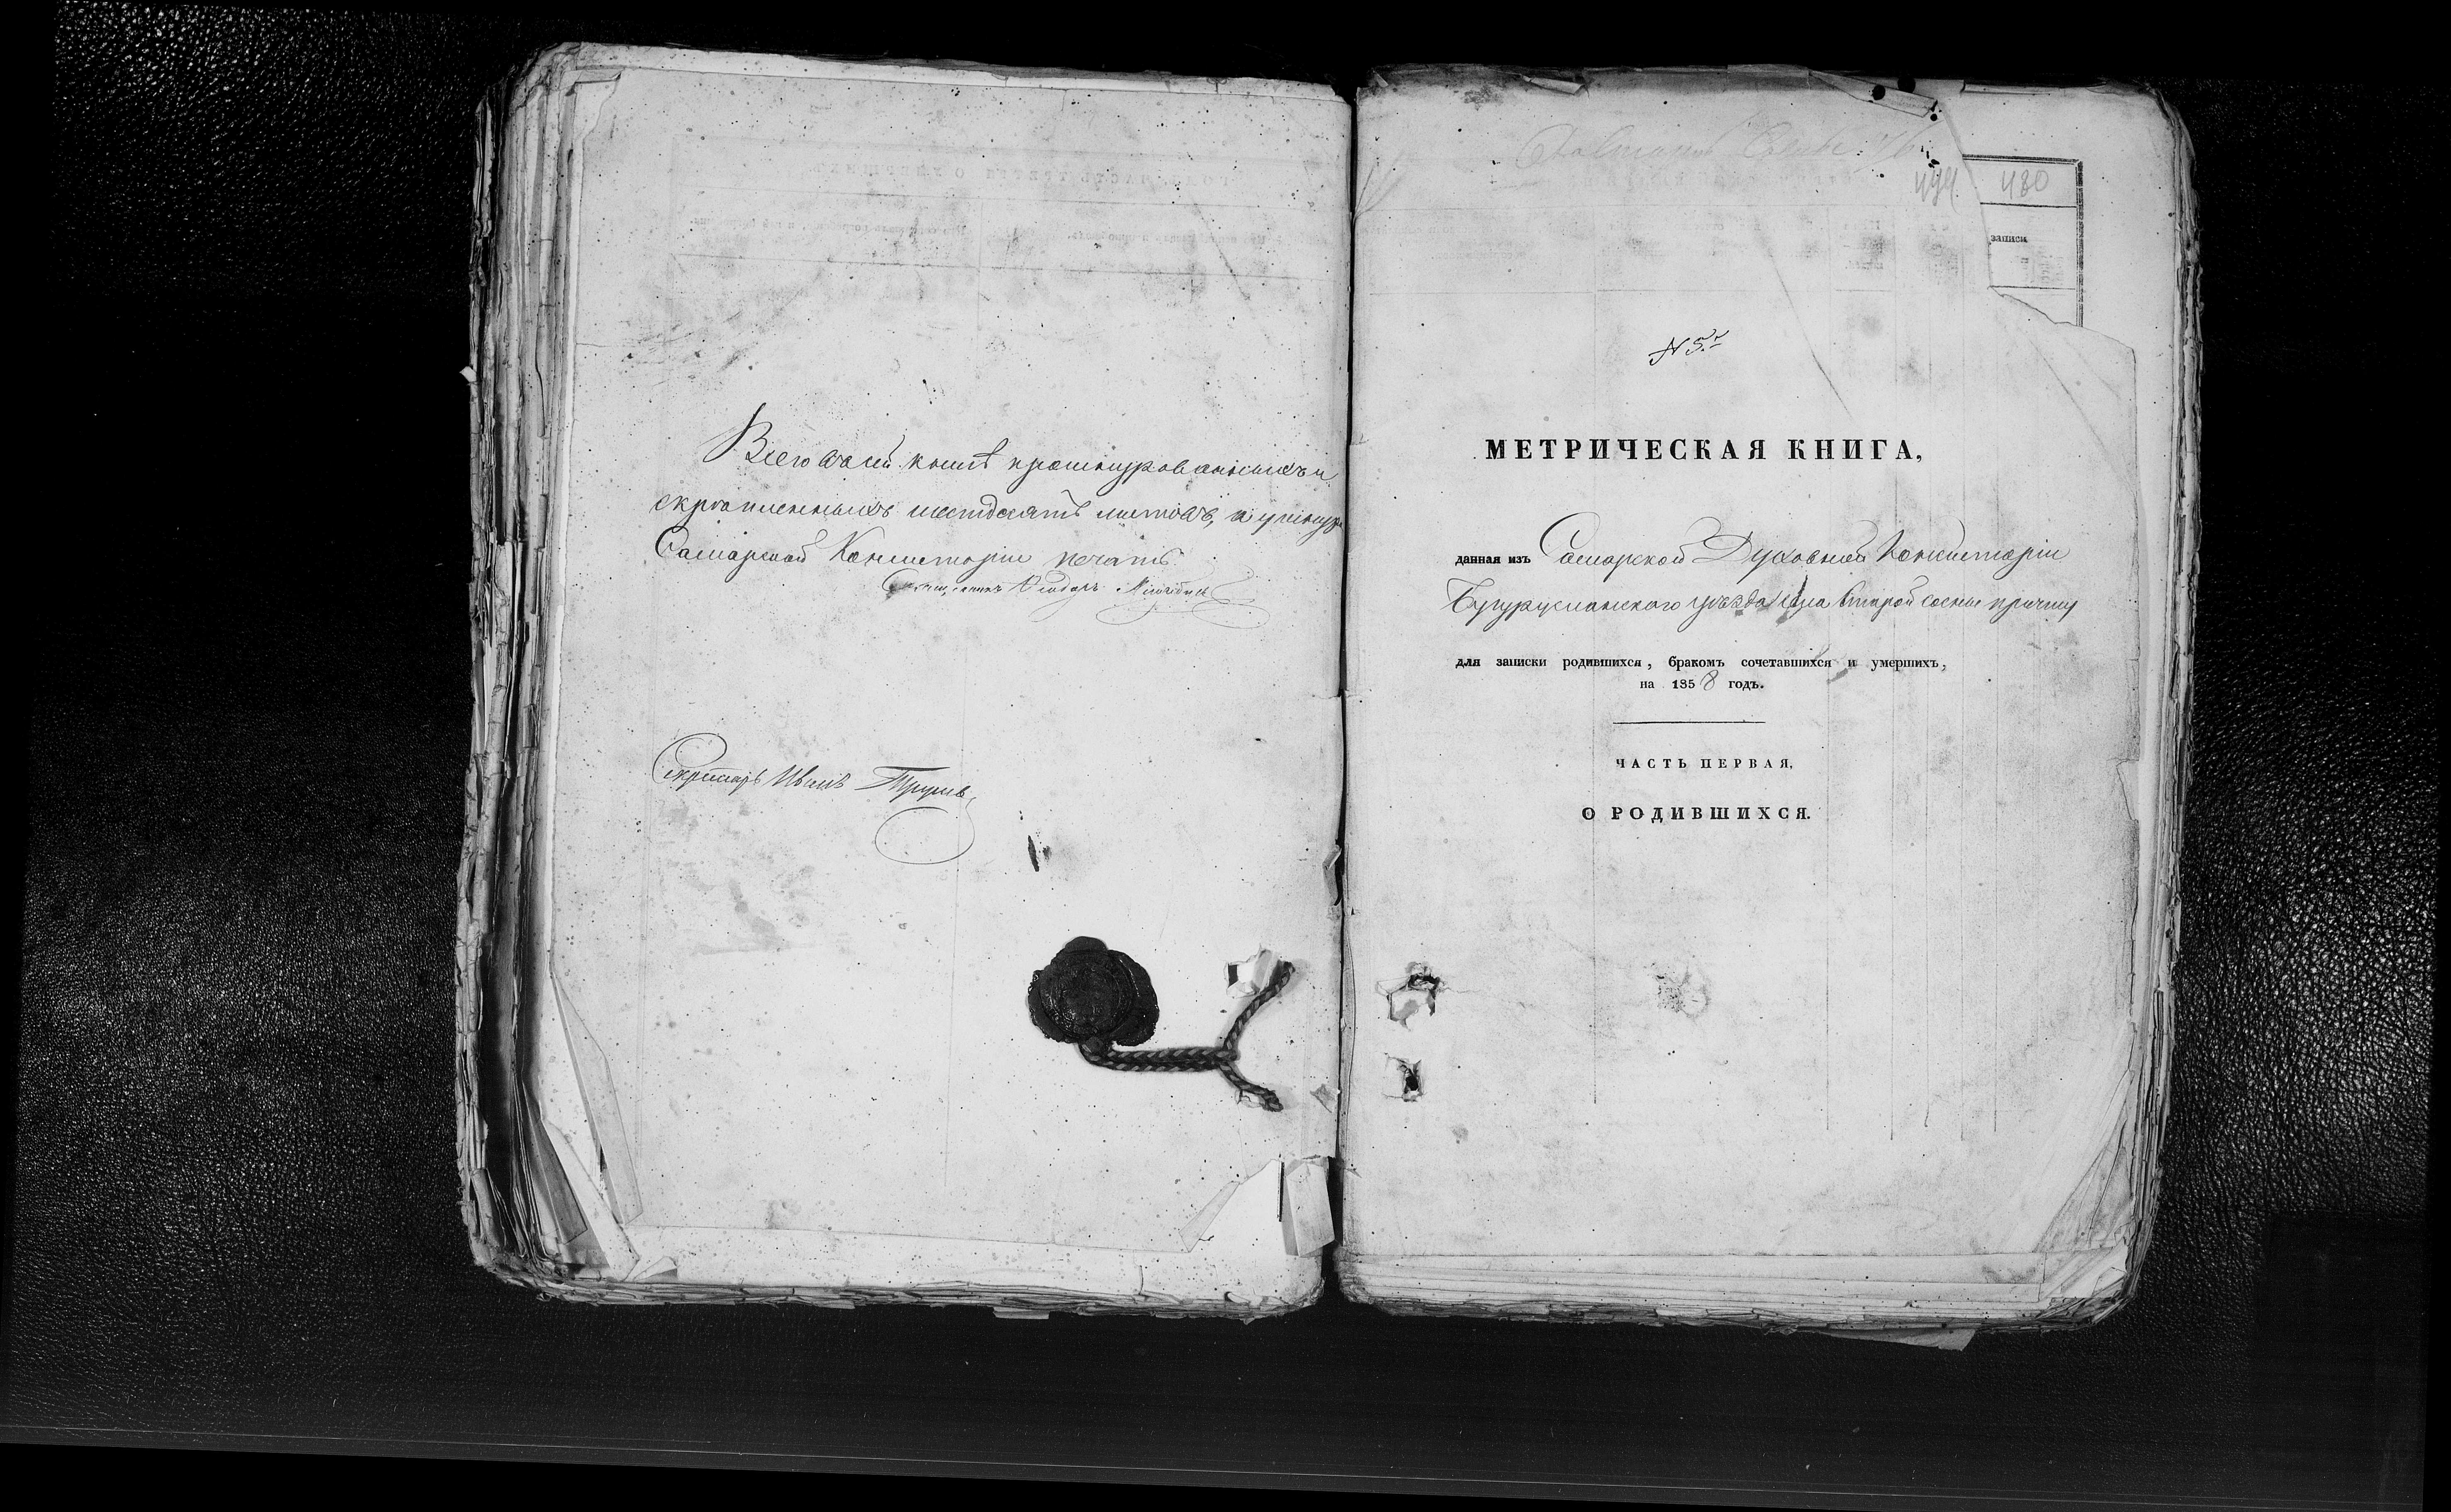 Всего въ сей книгѣ прошнурованныхъ и
скрѣпленныхъ шестдесятъ листовъ, и у шнура
Самарской Консисторіи печать.
Священникъ Ѳеодоръ
Секретарь Иванъ
494 480
записи
№ 5.й
МЕТРИЧЕСКАЯ КНИГА,
данная изъ Самарской Духовной Консисторіи
Бугурусланскаго уѣзда села Второй Сосны причту
для записки родившихся, бракомъ сочетавшихся и умершихъ,
на 1858 годъ.
ЧАСТЬ ПЕРВАЯ,
О РОДИВШИХСЯ.